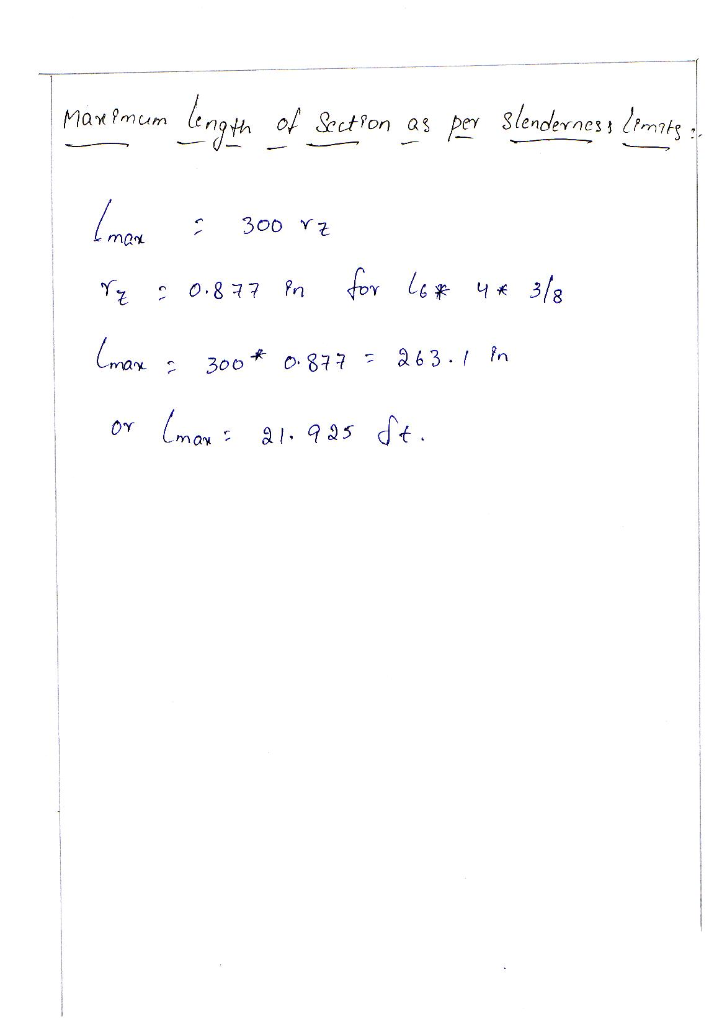 Maximum length of Section as per Slenderness limits :-
Lmax = 300 rz
rz = 0.877 in for L6* 4* 3/8
Lmax = 300* 0.877 = 263.1 in
or Lmax = 21.925 ft.